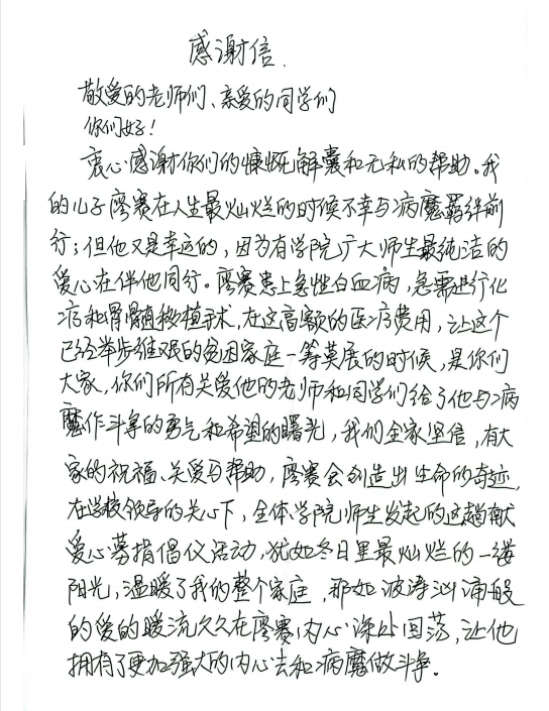 感谢信.
敬爱的老师们、亲爱的同学们
你们好！
衷心感谢你们的慷慨解囊和无私的帮助。我
的儿子廖赛在人生最灿烂的时候不幸与病魔羁绊前
行；但他又是幸运的，因为有学院广大师生最纯洁的
爱心在伴他同行。廖赛患上急性白血病，急需进行化
疗和骨髓移植手术，在这高额的医疗费用，让这个
已经举步维艰的贫困家庭一筹莫展的时候，是你们
大家，你们所有关爱他的老师和同学们给了他与病
魔作斗争的勇气和希望的曙光，我们全家坚信，有大
家的祝福、关爱与帮助，廖赛会创造出生命的奇迹，
在学校领导的关心下，全体学院师生发起的这趟献
爱心募捐倡仪活动，犹如冬日里最灿烂的一缕
阳光，温暖了我的整个家庭，那如波涛汹涌般
的爱的暖流久久在廖赛内心深处回荡，让他
拥有了更加强大的内心去和病魔做斗争。